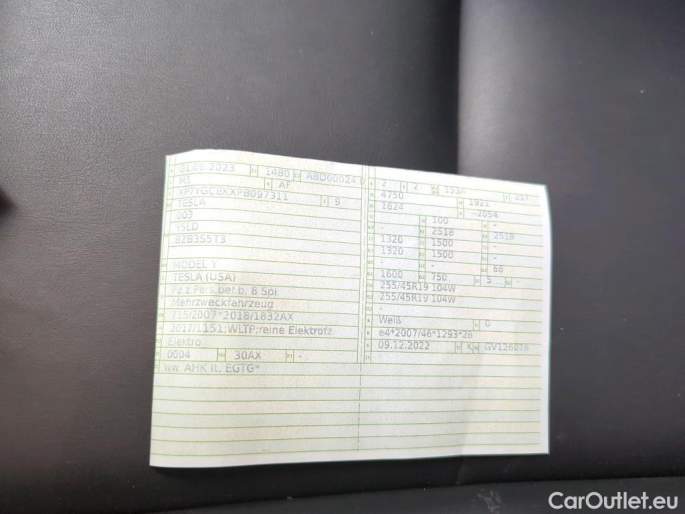 01.06.2023 1480 ABD00024
M1 AF
9
TESLA
003
Y5LD
B2B3S5T3
MODEL Y
TESLA (USA)
Fz.z.Pers.bef.b. 8 Spl
Mehrzweckfahrzeug
715/2007*2018/1832AX
2017/1151;WLTP;reine Elektrofz
Elektro
0004 30AX -
ww. AHK lt. EGTG*
2 2
4750 1921
1624 -2054
- 100 -
- 2518 2518
1320 1500 -
1320 1500 -
- - 68
1600 750 5 -
255/45R19 104W
255/45R19 104W
-
Weiß 0
e4*2007/46*1293*28
09.12.2022 K
CarOutlet.eu